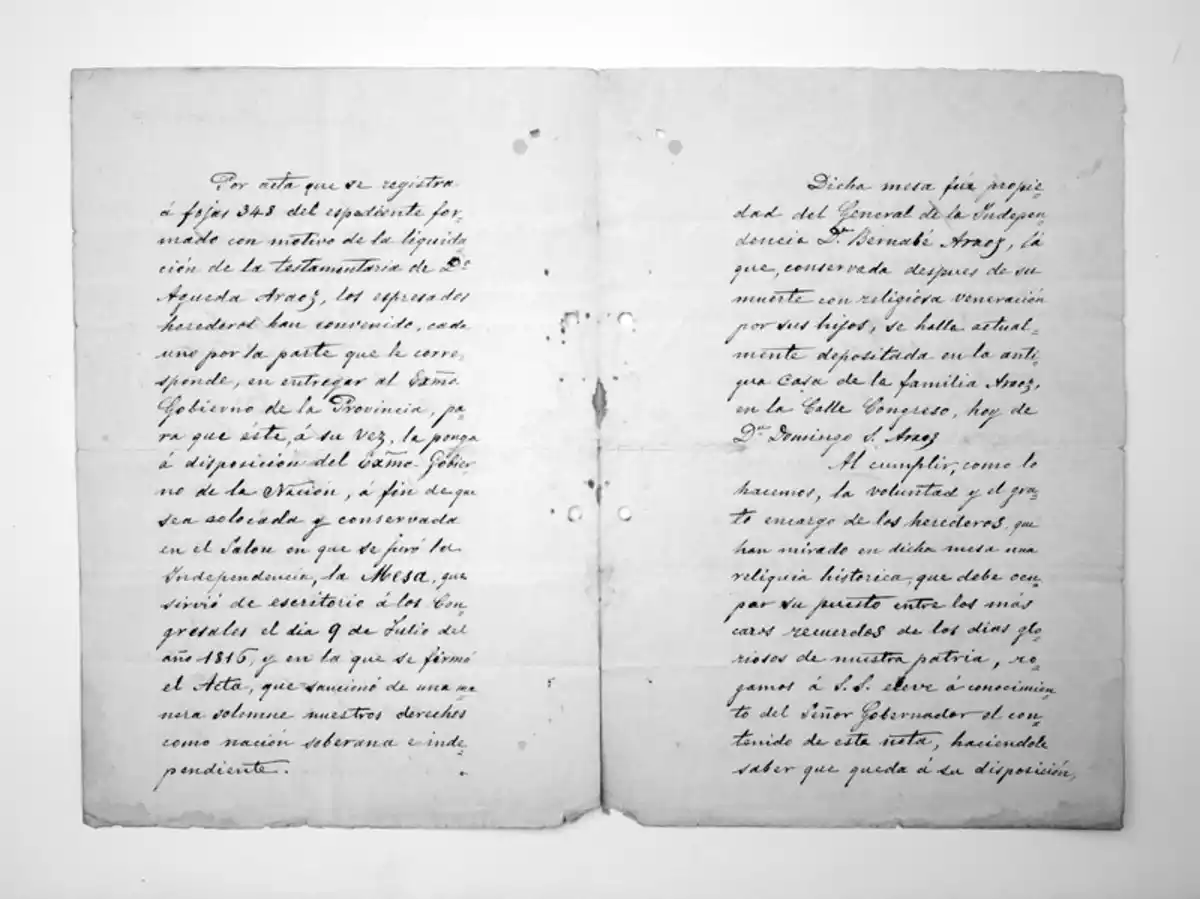 Por acta que se registra
á fojas 348 del espediente for-
mado con motivo de la liquida
ción de la testamentaria de Dª
Agueda Araoz, los espresados
herederos han convenido, cada
uno por la parte que le corre-
sponde, en entregar al Exmo.
Gobierno de la Provincia, pa-
ra que éste, á su vez, la ponga
á disposición del Exmo. Gobier-
no de la Nación, á fin de que
sea colocada y conservada
en el Salon en que se juró la
Independencia, la Mesa, que
sirvió de escritorio á los Con-
gresales el dia 9 de Julio del
año 1816, y en la que se firmó
el Acta, que sancionó de una ma-
nera solemne nuestros derechos
como nación soberana e inde-
pendiente.
Dicha mesa fué propie-
dad del General de la Indepen-
dencia Dn. Bernabé Araoz, la
que, conservada despues de su
muerte con religiosa veneración
por sus hijos, se halla actual-
mente depositada en la anti-
gua Casa de la familia Araoz,
en la Calle Congreso, hoy de
Dn. Domingo S. Araoz
Al cumplir, como lo
hacemos, la voluntad y el gra-
to encargo de los herederos, que
han mirado en dicha mesa una
reliquia historica, que debe ocu-
par su puesto entre los más
caros recuerdos de los dias glo-
riosos de nuestra patria, ro-
gamos á S.S. eleve á conocimien-
to del Señor Gobernador el con-
tenido de esta nota, haciendole
saber que queda á su disposición,